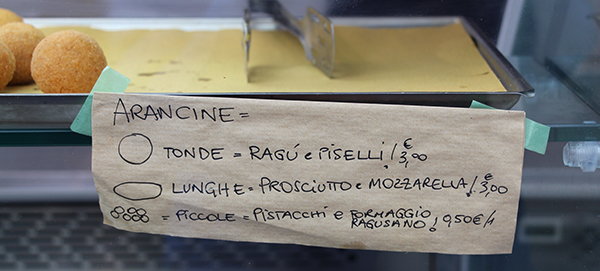 ARANCINE =
TONDE = RAGÚ e PISELLI / 3,00 €
LUNGHE = PROSCIUTTO e MOZZARELLA / 3,00 €
= PICCOLE = PISTACCHI e FORMAGGIO RAGUSANO / 0,50 €/1